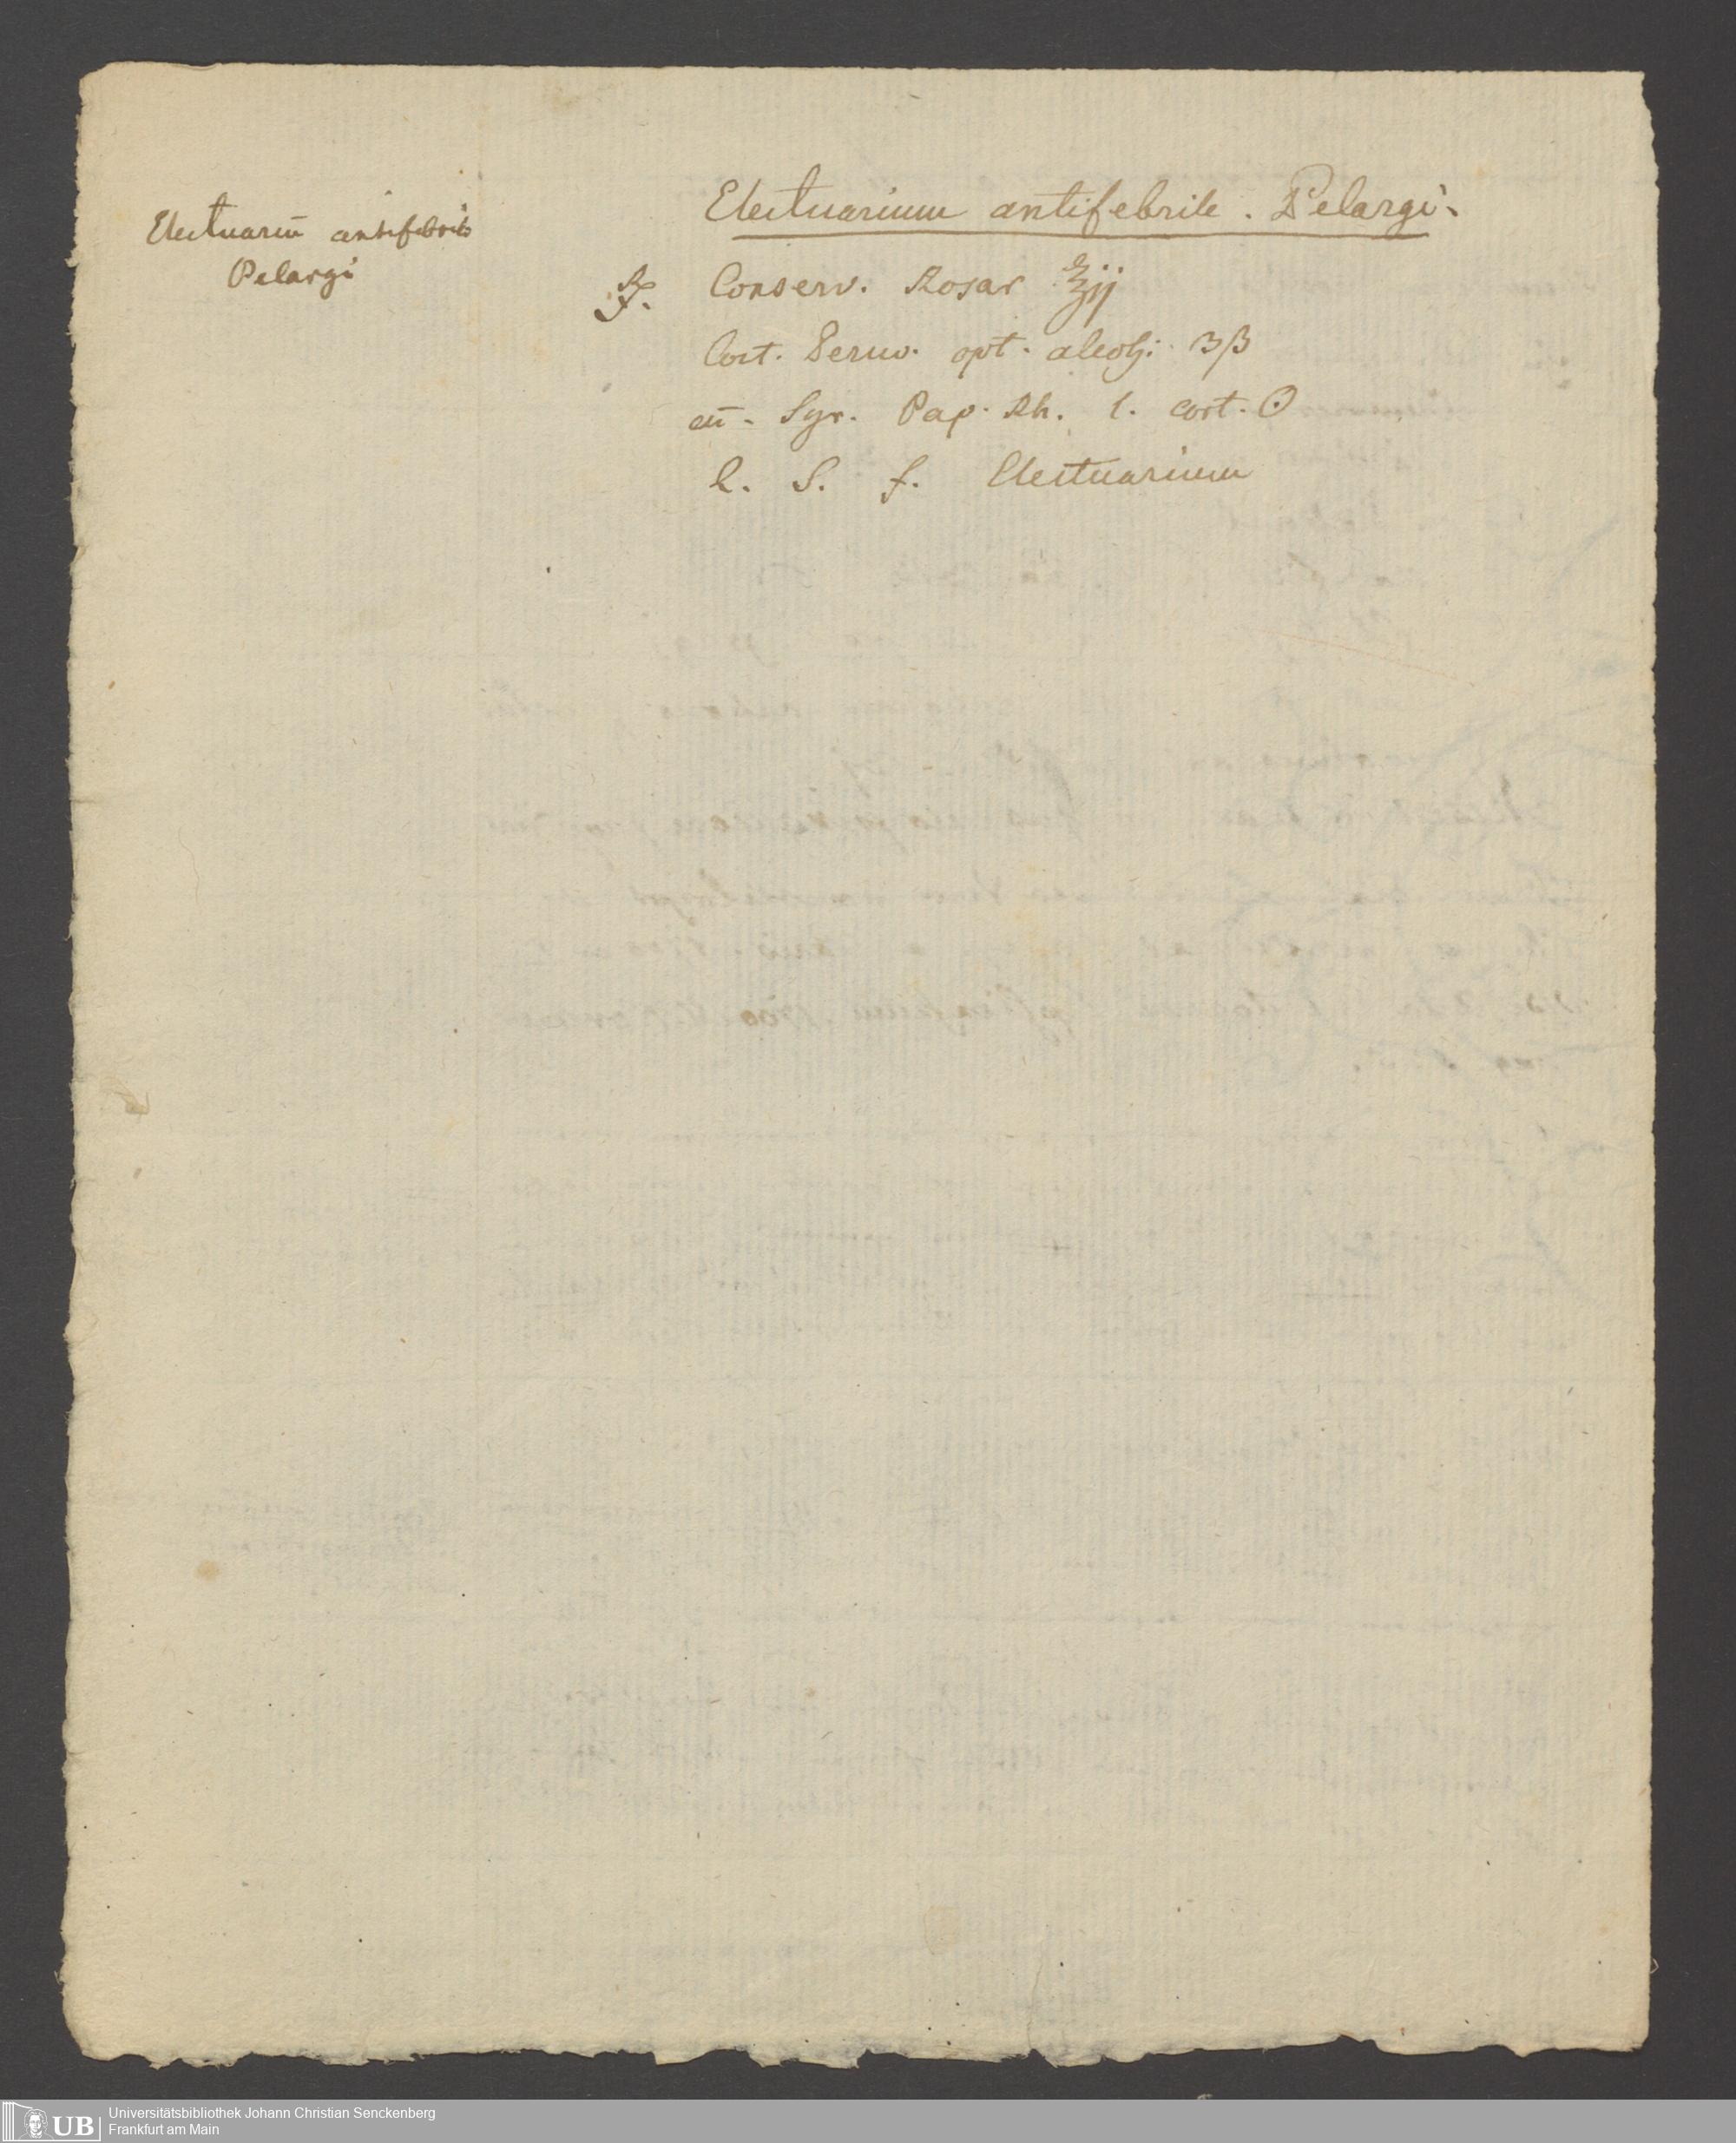 Electuariū antifebrile
Pelargi
Electuarium antifebrile. Pelargi.
℞ Conserv. Rosar ℥ij
Cort. Peruv. opt. alcoh: ʒβ
cū. Syr. Pap. Rh. l. cort. ☉
l. S. f. Electuarium
UB
Universitätsbibliothek Johann Christian Senckenberg
Frankfurt am Main